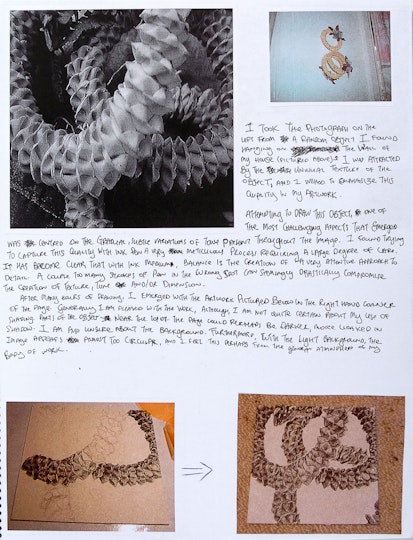 I TOOK THE PHOTOGRAPH ON THE
LEFT FROM A RANDOM OBJECT I FOUND
HANGING ON THE WALL OF
MY HOUSE (PICTURED ABOVE). I WAS ATTRACTED
BY THE UNUSUAL TEXTURE OF THE
OBJECT, AND I WISHED TO EMPHASIZE THIS
QUALITY IN MY ARTWORK.
ATTEMPTING TO DRAW THIS OBJECT, ONE OF
THE MOST CHALLENGING ASPECTS THAT EMERGED
WAS CENTRED ON THE GRADUAL, SUBTLE VARIATIONS OF TONE PRESENT THROUGHOUT THE IMAGE. I FOUND TRYING
TO CAPTURE THIS QUALITY WITH INK PEN A VERY METICULOUS PROCESS REQUIRING A LARGE DEGREE OF CARE.
IT HAS BECOME CLEAR THAT WITH INK MEDIUM, BALANCE IS THE CREATION OF A VERY ATTENTIVE APPROACH TO
DETAIL. A COUPLE TOO MANY STROKES OF PEN IN THE WRONG SPOT CAN SEEMINGLY DRASTICALLY COMPROMISE
THE CREATION OF TEXTURE, TONE AND/OR DIMENSION.
AFTER MANY HOURS OF DRAWING, I EMERGED WITH THE ARTWORK PICTURED BELOW IN THE RIGHT HAND CORNER
OF THE PAGE. GENERALLY I AM PLEASED WITH THE WORK, ALTHOUGH I AM NOT QUITE CERTAIN ABOUT MY USE OF
SHADING. PART OF THE OBJECT NEAR THE TOP OF THE PAGE COULD PERHAPS BE DARKER, MORE CLOAKED IN
SHADOW. I AM ALSO UNSURE ABOUT THE BACKGROUND. FURTHERMORE, WITH THE LIGHT BACKGROUND, THE
IMAGE APPEARS ALMOST TOO CIRCULAR, AND I FEEL THIS DEPARTS FROM THE ATMOSPHERE OF MY
BODY OF WORK.